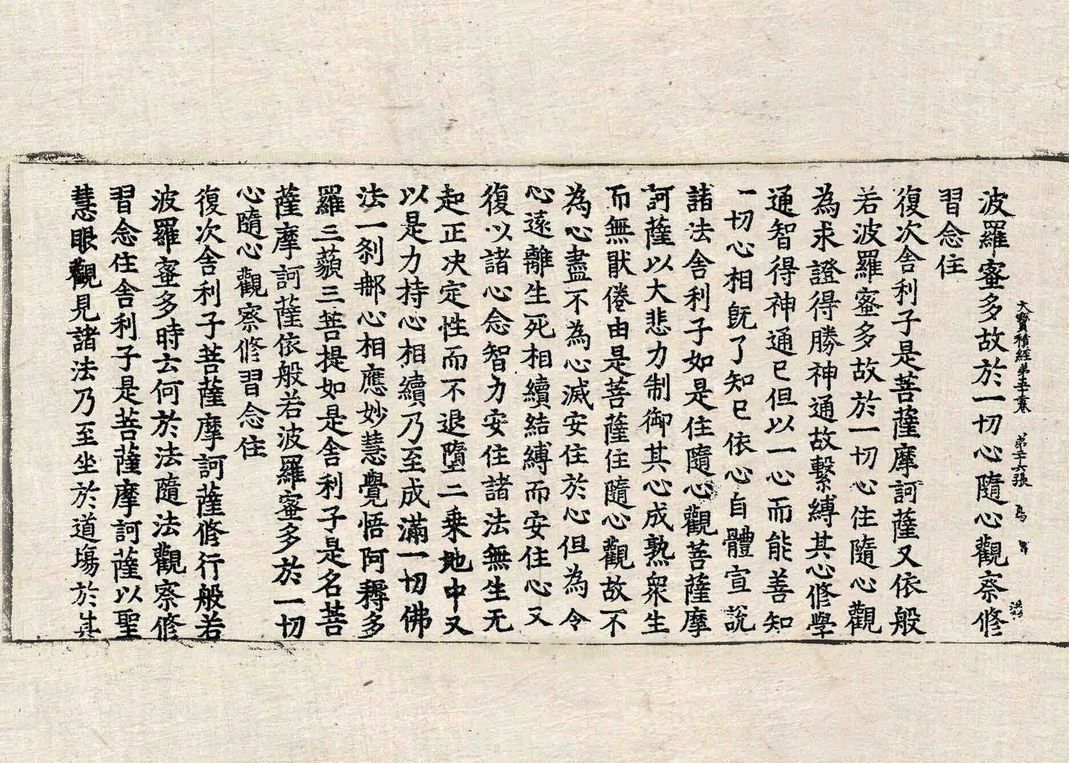 波羅蜜多故於一切心隨心觀察修
習念住
復次舍利子是菩薩摩訶薩又依般
若波羅蜜多故於一切心住隨心觀
為求證得勝神通故繫縛其心修學
通智得神通已但以一心而能善知
一切心相既了知已依心自體宣說
諸法舍利子如是住隨心觀菩薩摩
訶薩以大悲力制御其心成熟衆生
而無猒倦由是菩薩住隨心觀故不
為心盡不為心滅安住於心但為令
心遠離生死相續結縛而安住心又
復以諸心念智力安住諸法無生无
起正决定性而不退墮二乗地中又
以是力持心相續乃至成滿一切佛
法一刹那心相應妙慧覺悟阿耨多
羅三藐三菩提如是舍利子是名菩
薩摩訶薩依般若波羅蜜多於一切
心隨心觀察修習念住
復次舍利子菩薩摩訶薩修行般若
波羅蜜多時云何於法隨法觀察修
習念住舍利子是菩薩摩訶薩以聖
慧眼觀見諸法乃至坐於道場於其